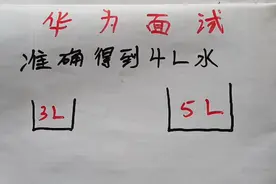 华为面试
准确得到4L水
3L 5L